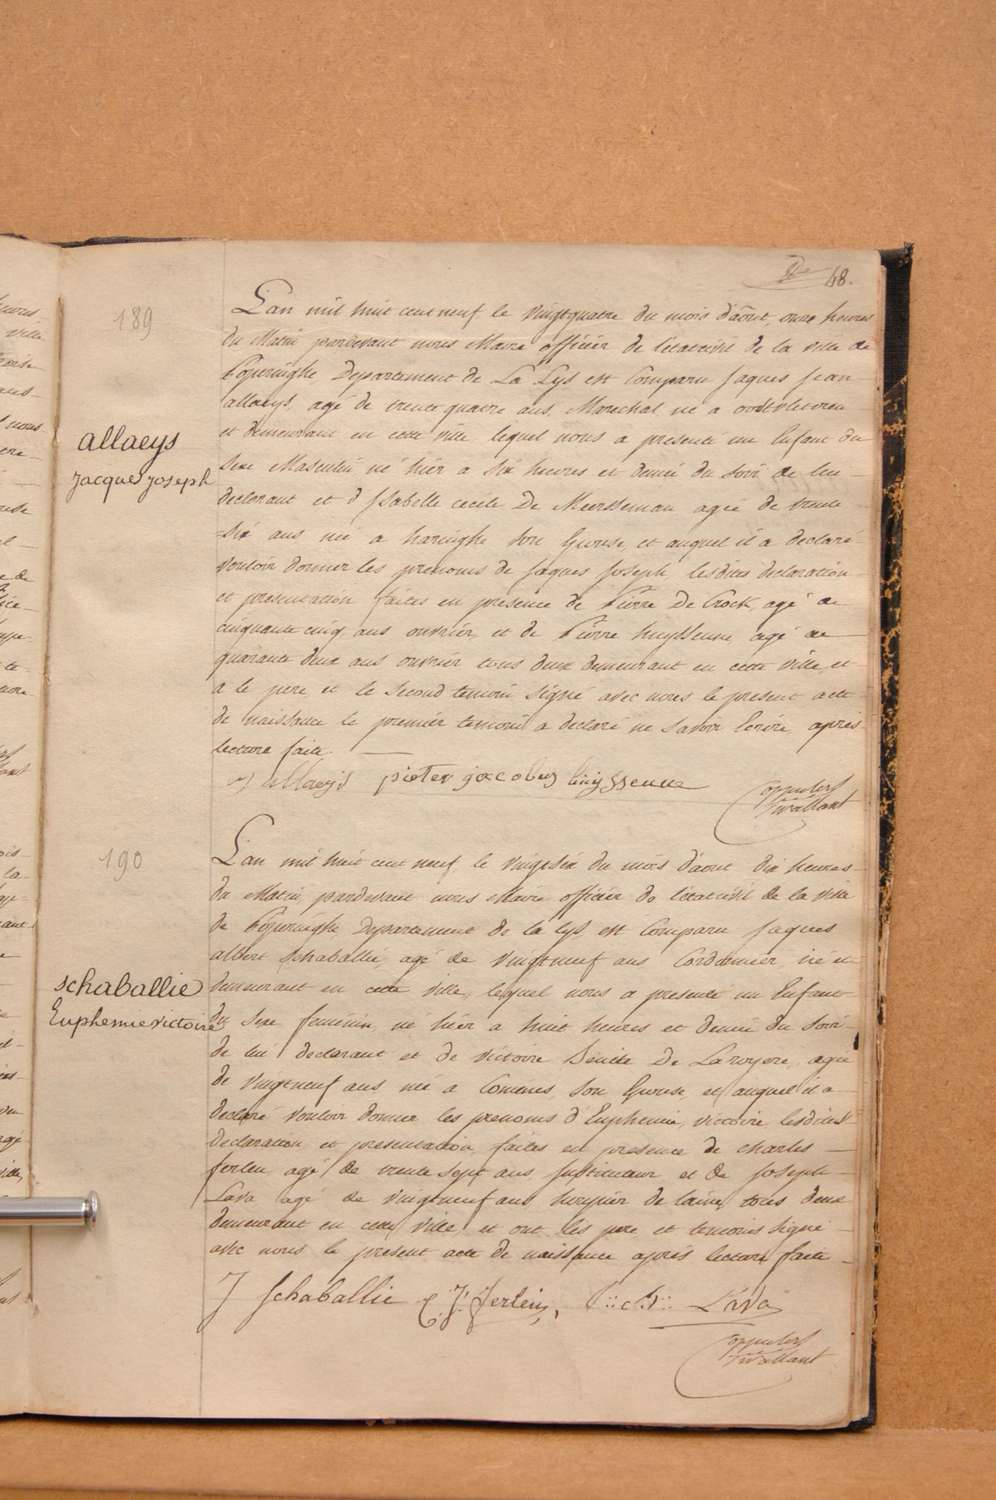 68.
189
allaeys
Jacque Joseph
L'an mil huit cent neuf le vingtquatre du mois d'août, onze heures
du Matin pardevant nous Maire officier de l'état civil de la ville de
Poperinghe Departement de La Lys est Comparu Jaques Jean
allaeys, agé de trente quatre ans, Marechal né a oostvleteren
et demeurant en cette ville, lequel nous a presenté un Enfant du
sexe Masculin né hier a six heures et demie du soir de lui
declarant et d'Isabelle cecile De Meersseman agée de trente
six ans née a haringhe son Epouse, et auquel il a declaré
vouloir donner les prenoms de Jaques Joseph, lesdites declaration
et presentation faites en presence de Pierre De Crock, agé de
cinquante cinq ans ouvrier, et de Pierre huysseune, agé de
quarante deux ans ouvrier tous deux demeurant en cette ville, et
a le pere et le second temoin signé avec nous le present acte
de naissance le premier temoin a declaré ne savoir Ecrire, après
lecture faite.
allaeys pieter jacobus huÿsseune
190
schaballie
Euphemie victoire
L'an mil huit cent neuf, le vingtsix du mois d'aout dix heures
du Matin, pardevant nous Maire officier de l'état civil de la ville
de Poperinghe Departement de la lys est Comparu Jaques
albert schaballie, agé de vingtneuf ans Cordonnier, né et
demeurant en cette ville, lequel nous a presenté un Enfant
du sexe feminin, né hier a huit heures et demie du soir
de lui declarant et de victoire De Laroyere, agée
de vingtneuf ans née a Comines, son Epouse, et auquel il a
declaré vouloir donner les prenoms d'Euphemie, victoire, lesdites
declaration et presentation, faites en presence de charles
ferlein agé de trente sept ans, et de Joseph
Lava agé de vingtneuf ans, de laine, tous deux
demeurant en cette ville, et ont les pere et temoins signé
avec nous le present acte de naissance après lecture faite
J Schaballie C. J. ferlein, Lava